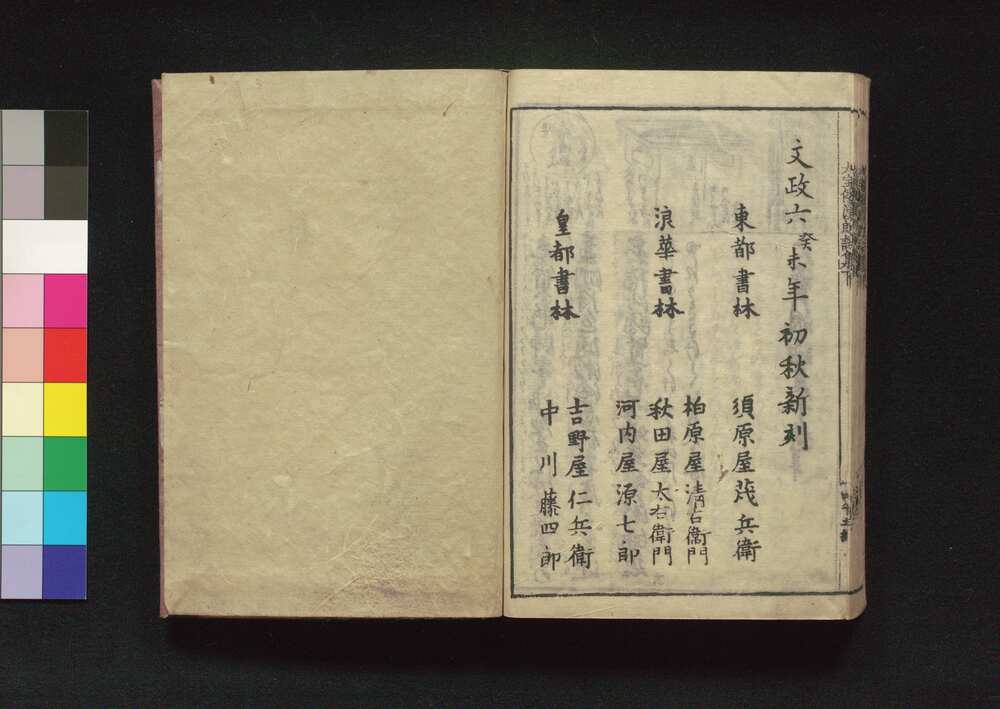 文政六癸未年初秋新刻
東都書林
須原屋茂兵衛
浪華書林
柏原屋清右衛門
秋田屋太右衛門
河内屋源七郎
皇都書林
吉野屋仁兵衛
中川藤四郎